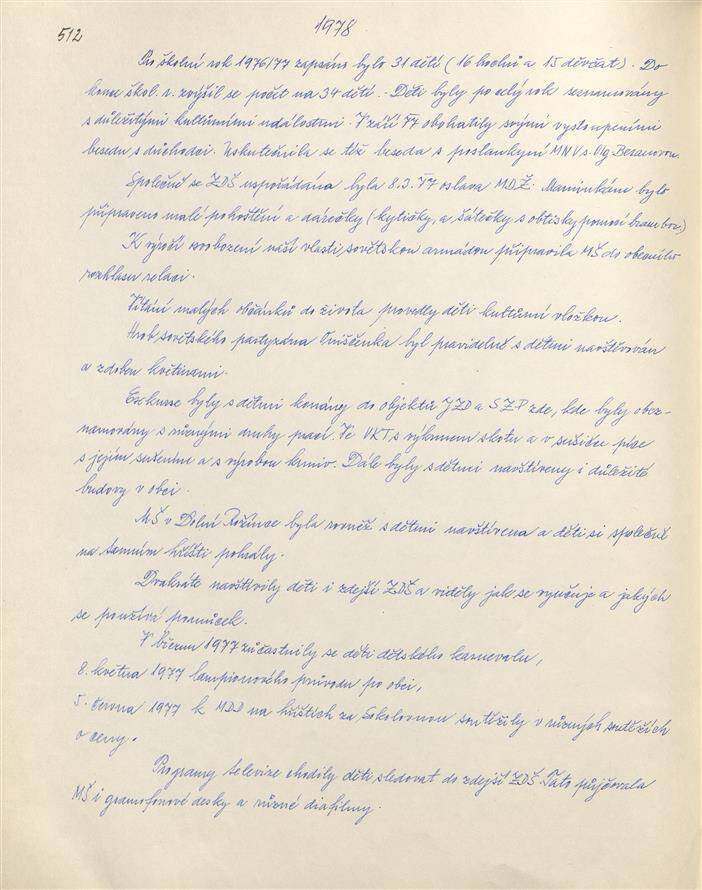 512
1978
Pro školní rok 1976/77 zapsáno bylo 31 dětí (16 hochů a 15 děvčat). Do
konce škol. r. zvýšil se počet na 34 dětí. Děti byly po celý rok seznamovány
s důležitými kulturními událostmi. V září 77 obohatily svými vystoupeními
besedu s důchodci. Uskutečnila se též beseda s poslankyní MNV s. Olg. Beranovou.
Společně se ZDŠ uspořádána byla 8.3.77 oslava MDŽ. Maminkám bylo
připraveno malé pohoštění a dárečky (kytičky, a šátečky s obtisky pomocí brambor.)
K výročí osvobození naší vlasti sovětskou armádou připravila MŠ do obecního
rozhlasu relaci.
Vítání malých občánků do života provedly děti kulturní vložkou.
Hrob sovětského partyzána Oniščenka byl pravidelně s dětmi navštěvován
a zdoben květinami.
Exkurse byly s dětmi konány do objektů JZD a SZP zde, kde byly obez-
namovány s různými druhy prací. Ve VKT s výkrmem skotu a v sušičce píce
s jejím sušením a s výrobou krmiv. Dále byly s dětmi navštíveny i důležité
budovy v obci.
MŠ v Dolní Rožínce byla rovněž s dětmi navštívena a děti si společně
na tamním hřišti pohrály.
Dvakráte navštívily děti i zdejší ZDŠ a viděly jak se vyučuje a jakých
se používá pomůcek.
V březnu 1977 zúčastnily se děti dětského karnevalu,
8. května 1977 lampionového průvodu po obci,
5. června 1977 k MDD na hřištích za Sokolovnou soutěžily v různých soutěžích
o ceny.
Programy televize chodily děti sledovat do zdejší ZDŠ. Tato půjčovala
MŠ i gramofonové desky a různé diafilmy.